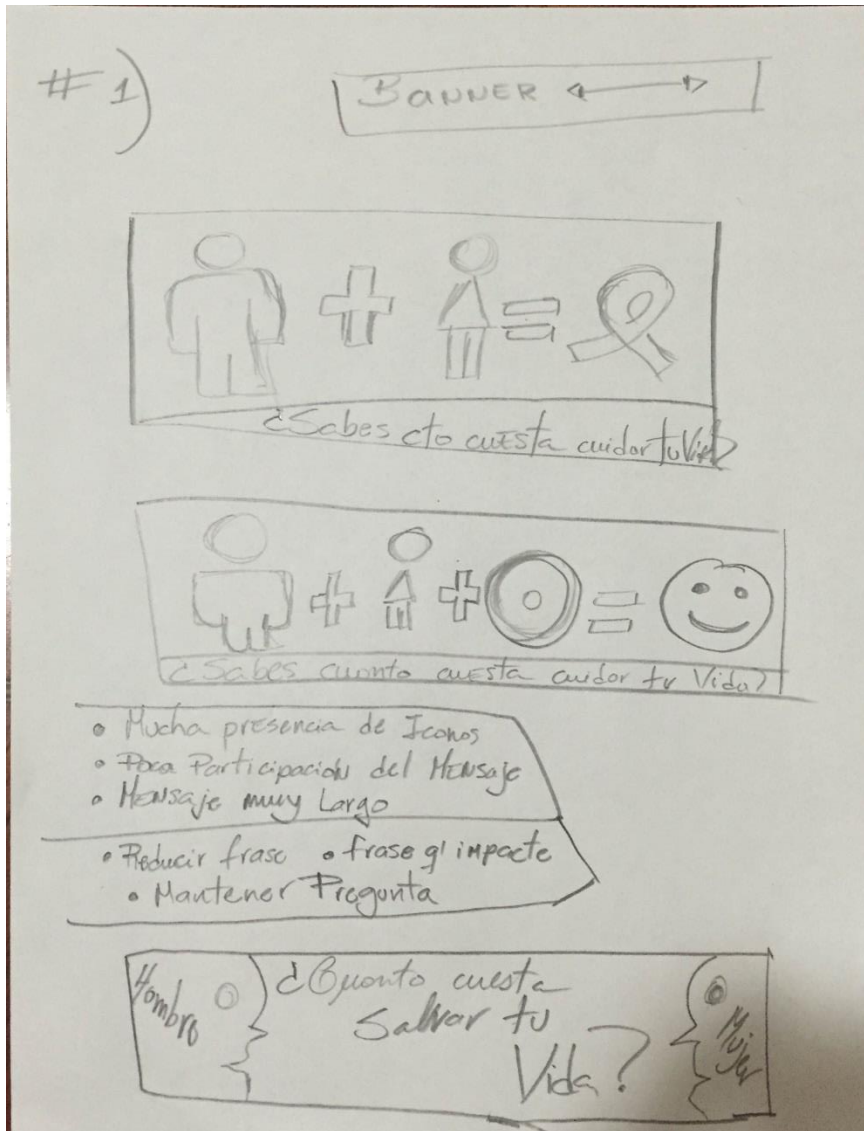 #1)
BANNER
¿Sabes cto cuesta cuidar tu Vida?
¿Sabes cuanto cuesta cuidar tu Vida?
• Mucha presencia de Iconos
• Poca Participación del Mensaje
• Mensaje muy Largo
• Reducir frase • frase q' impacte
• Mantener Pregunta
Hombre ¿Cuanto cuesta
Salvar tu
Vida?
Mujer